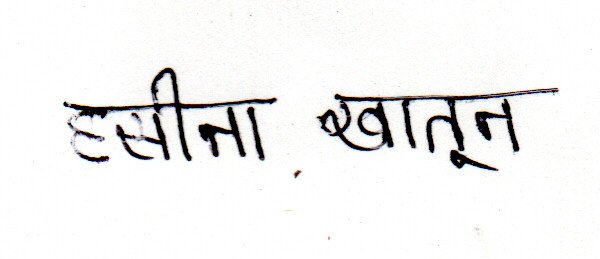 हसीना खातून